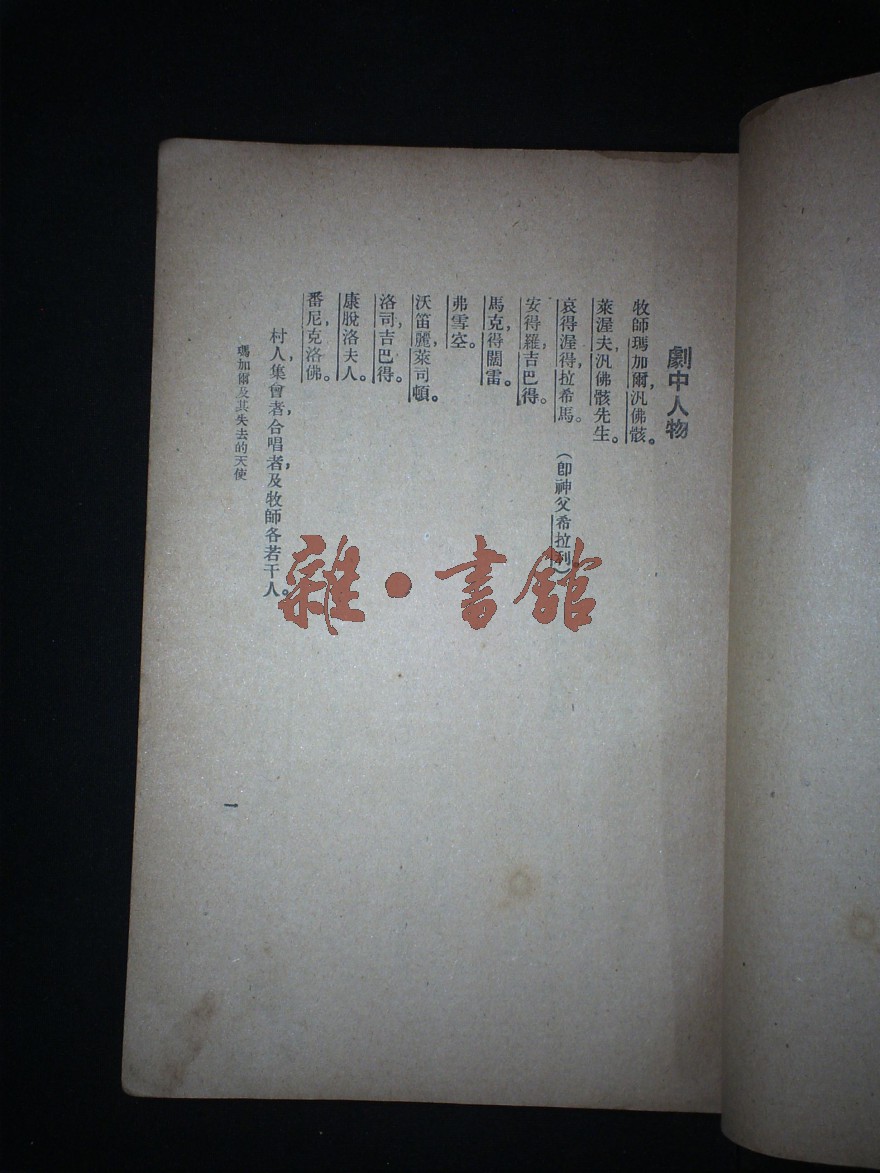 劇中人物
牧師瑪加爾，汎佛骸。
萊渥夫，汎佛骸先生。
哀得渥得，拉希馬。（卽神父希拉列）
安得羅，吉巴得。
馬克，得闊雷。
弗雪空。
沃笛麗，萊司頓。
洛司，吉巴得。
康脫洛夫人。
番尼，克洛佛。
村人，集會者，合唱者，及牧師各若干人。
瑪加爾及其失去的天使
一
雜·書館